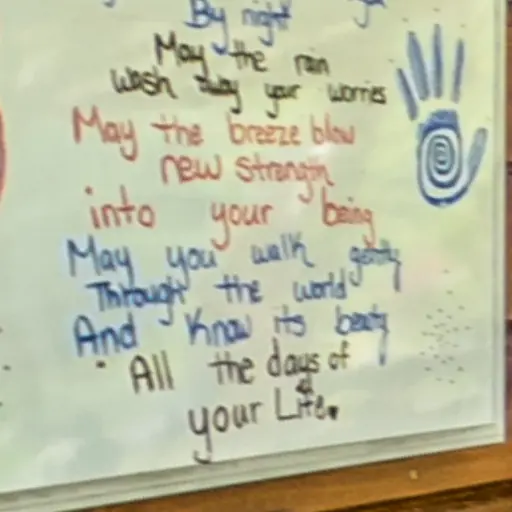 By night
May the rain
wash away your worries
May the breeze blow
new strength
into your being
May you walk gently
Through the world
And Know its beauty
All the days of
your Life.